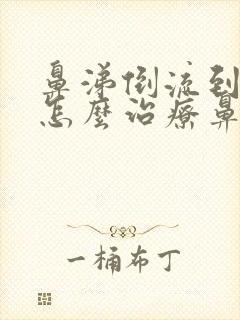 鼻涕倒流到
怎麼治療鼻
一桶布丁